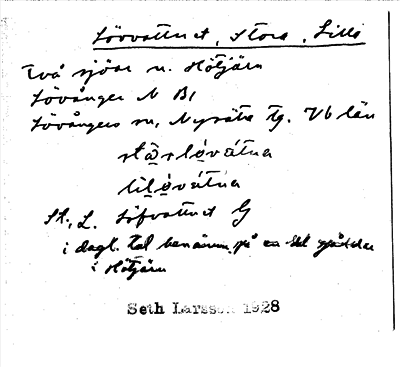 Lövvattnet, Stora, Lilla
Två sjöar n. Hötjärn
Lövånger N B1
Lövångers sn, Nysätra tg. Vb län
stɑ̄rlövátna
lilövátna
St., L. Löfvattnet G
i dagl. tal benämn. på en del
i Hötjärn
Seth Larsson 1928